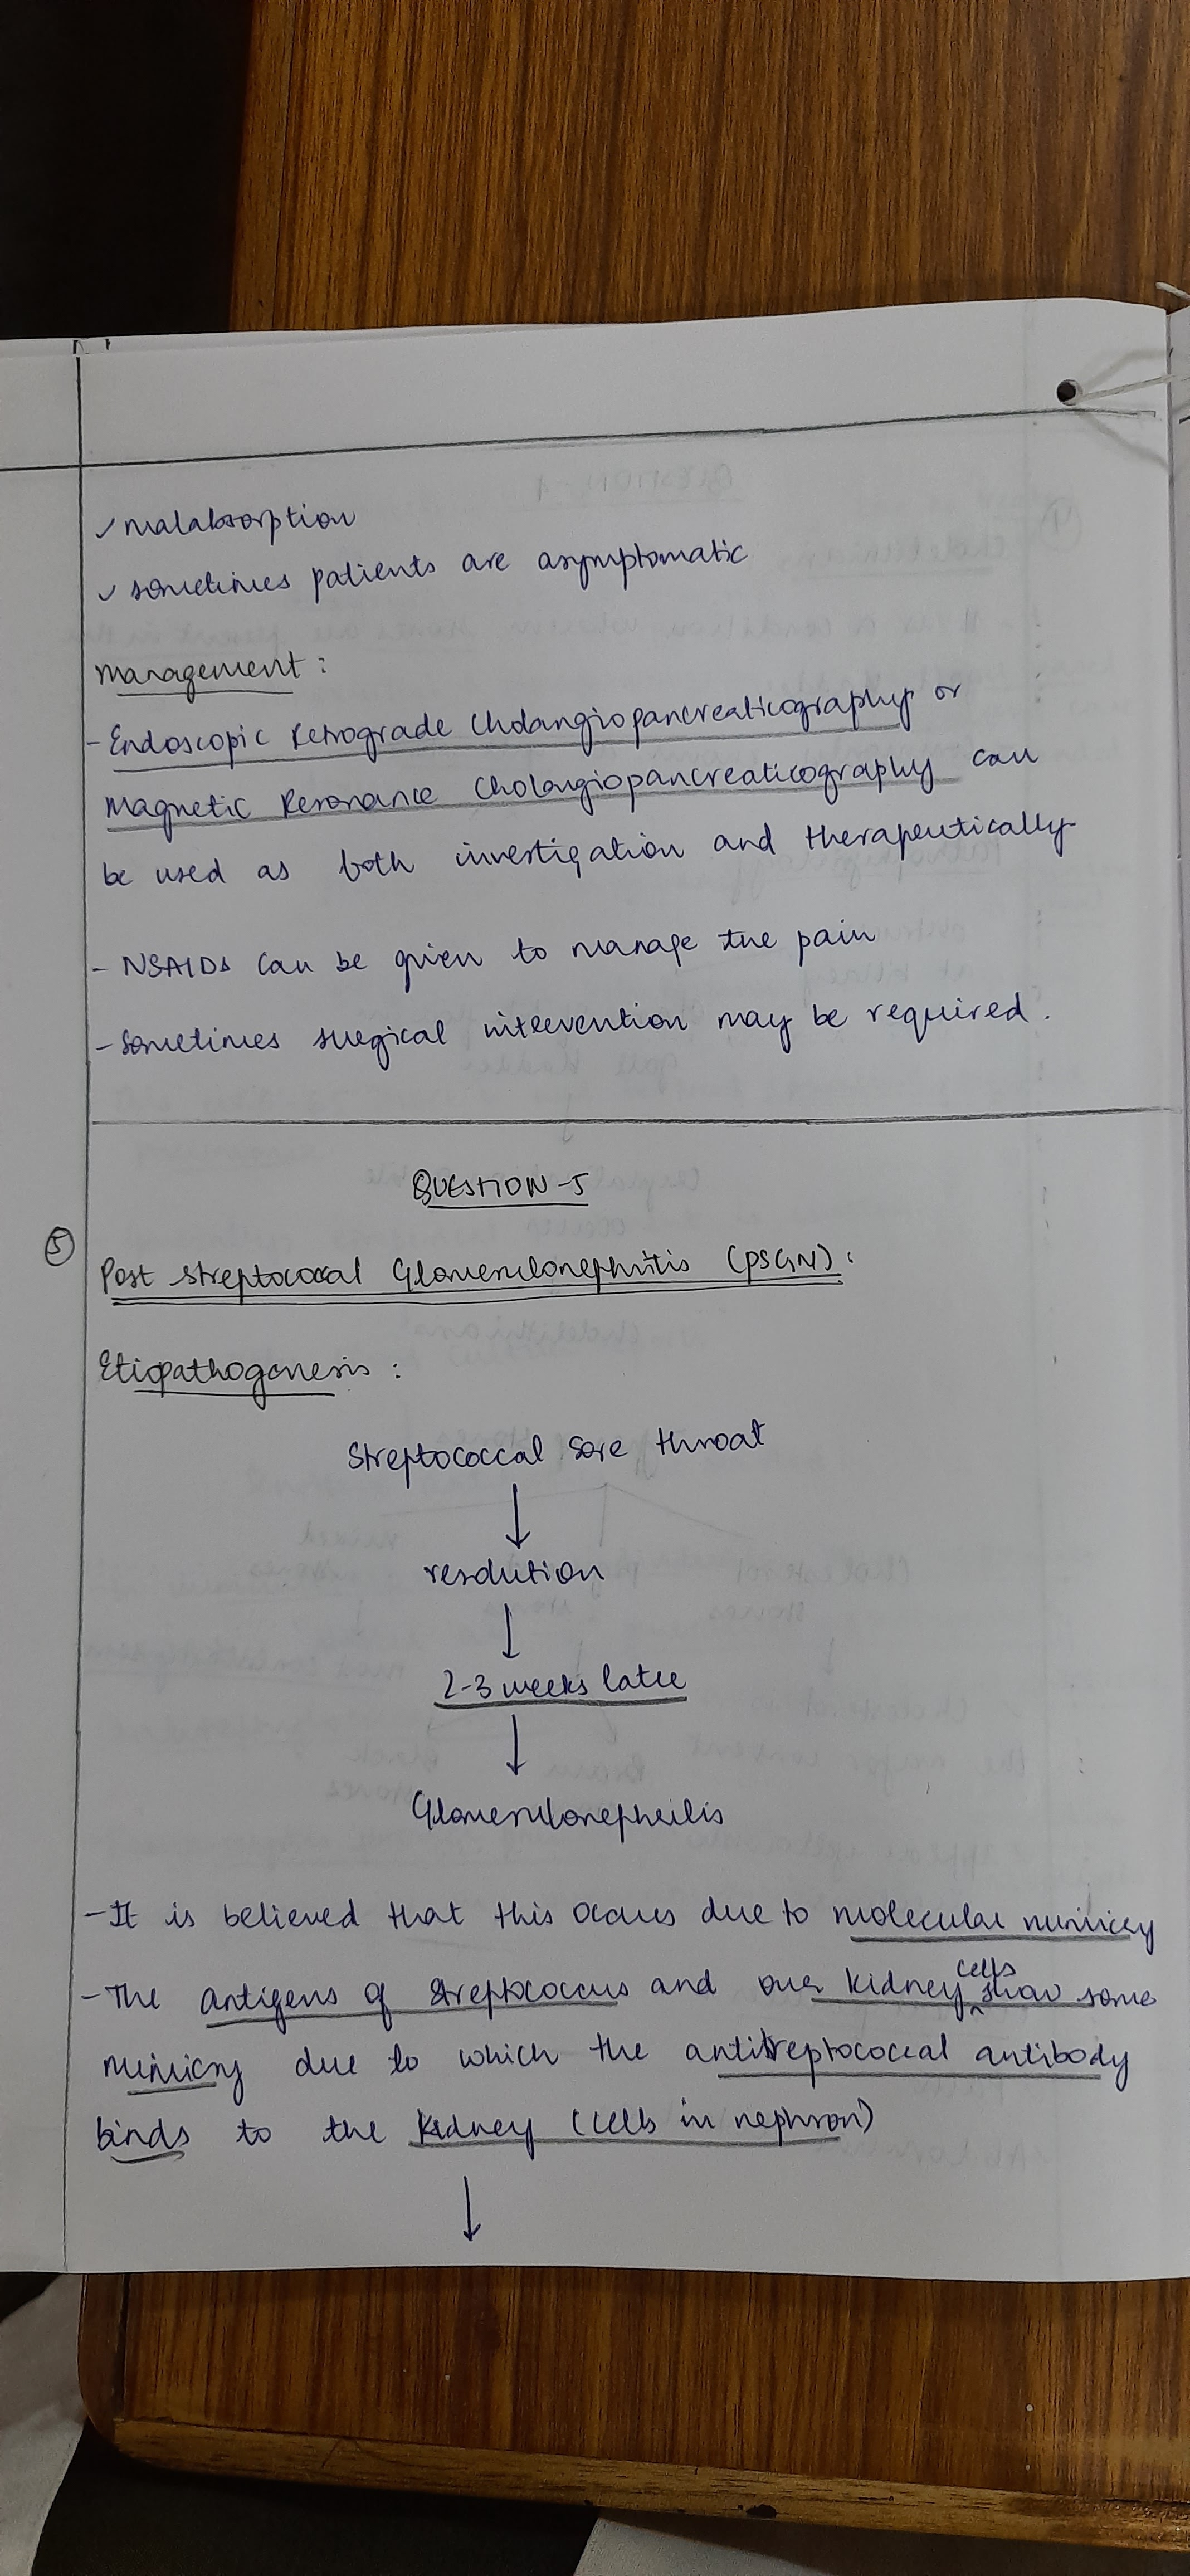 ✓ malabsorption
✓ sometimes patients are asymptomatic
Management :
- Endoscopic Retrograde Cholangiopancreaticography or
Magnetic Resonance Cholangiopancreaticography can
be used as both investigation and therapeutically
- NSAIDs can be given to manage the pain
- Sometimes surgical intervention may be required.
QUESTION-5
⑤ Post streptococcal Glomerulonephritis (PSGN):
Etiopathogenesis :
Streptococcal sore throat
↓
resolution
↓
2-3 weeks later
↓
Glomerulonephritis
- It is believed that this occurs due to molecular mimicry
- The antigens of streptococcus and our kidney cells show some
mimicry due to which the antistreptococcal antibody
binds to the kidney (cells in nephron)
↓